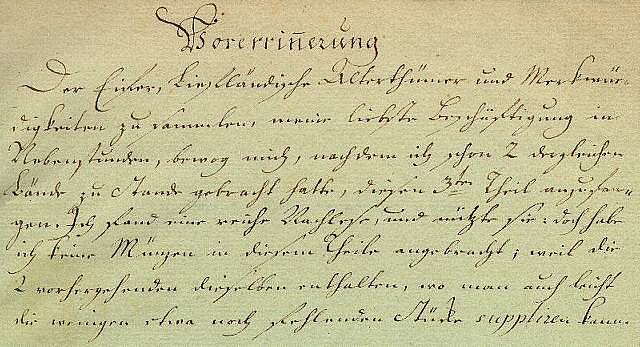 Vorerinnerung
Der Eifer, Liefländische Alterthümer und Merkwür-
digkeiten zu sammlen, meine liebste Beschäftigung in
Nebenstunden, bewog mich, nachdem ich schon 2 dergleichen
Bände zu Stande gebracht hatte, diesen 3ten Theil anzufan-
gen. Ich fand eine reiche Nachlese, und nützte sie: doch habe
ich keine Münzen in diesem Theile angebracht; weil die
2 vorhergehenden dieselben enthalten, wo man auch leicht
die wenigen etwa noch fehlenden Stücke suppliren kann.